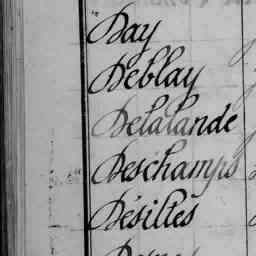 Day
Deblay
Delalande
Deschamps
Désiltes